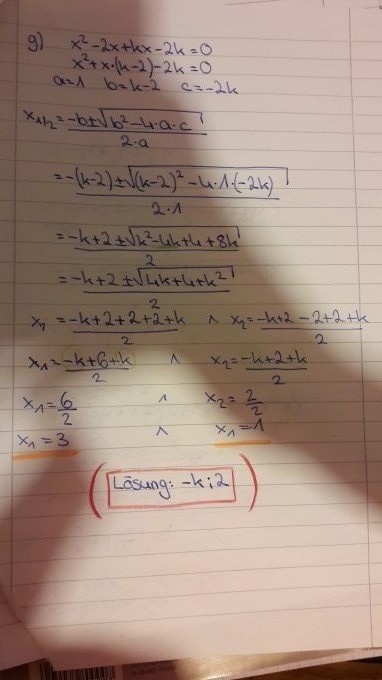 g) x²-2x+kx-2k=0
x²+x·(k-2)-2k=0
a=1 b=k-2 c=-2k
x₁/₂=(-b±√(b²-4·a·c))/(2·a)
=(-(k-2)±√((k-2)²-4·1·(-2k)))/(2·1)
=(-k+2±√(k²-4k+4+8k))/2
=(-k+2±√(4k+4+k²))/2
x₁=(-k+2+2+2+k)/2 ∧ x₂=(-k+2-2+2+k)/2
x₁=(-k+6+k)/2 ∧ x₂=(-k+2+k)/2
x₁=6/2 ∧ x₂=2/2
x₁=3 ∧ x₁=1
(Lösung: -k;2)